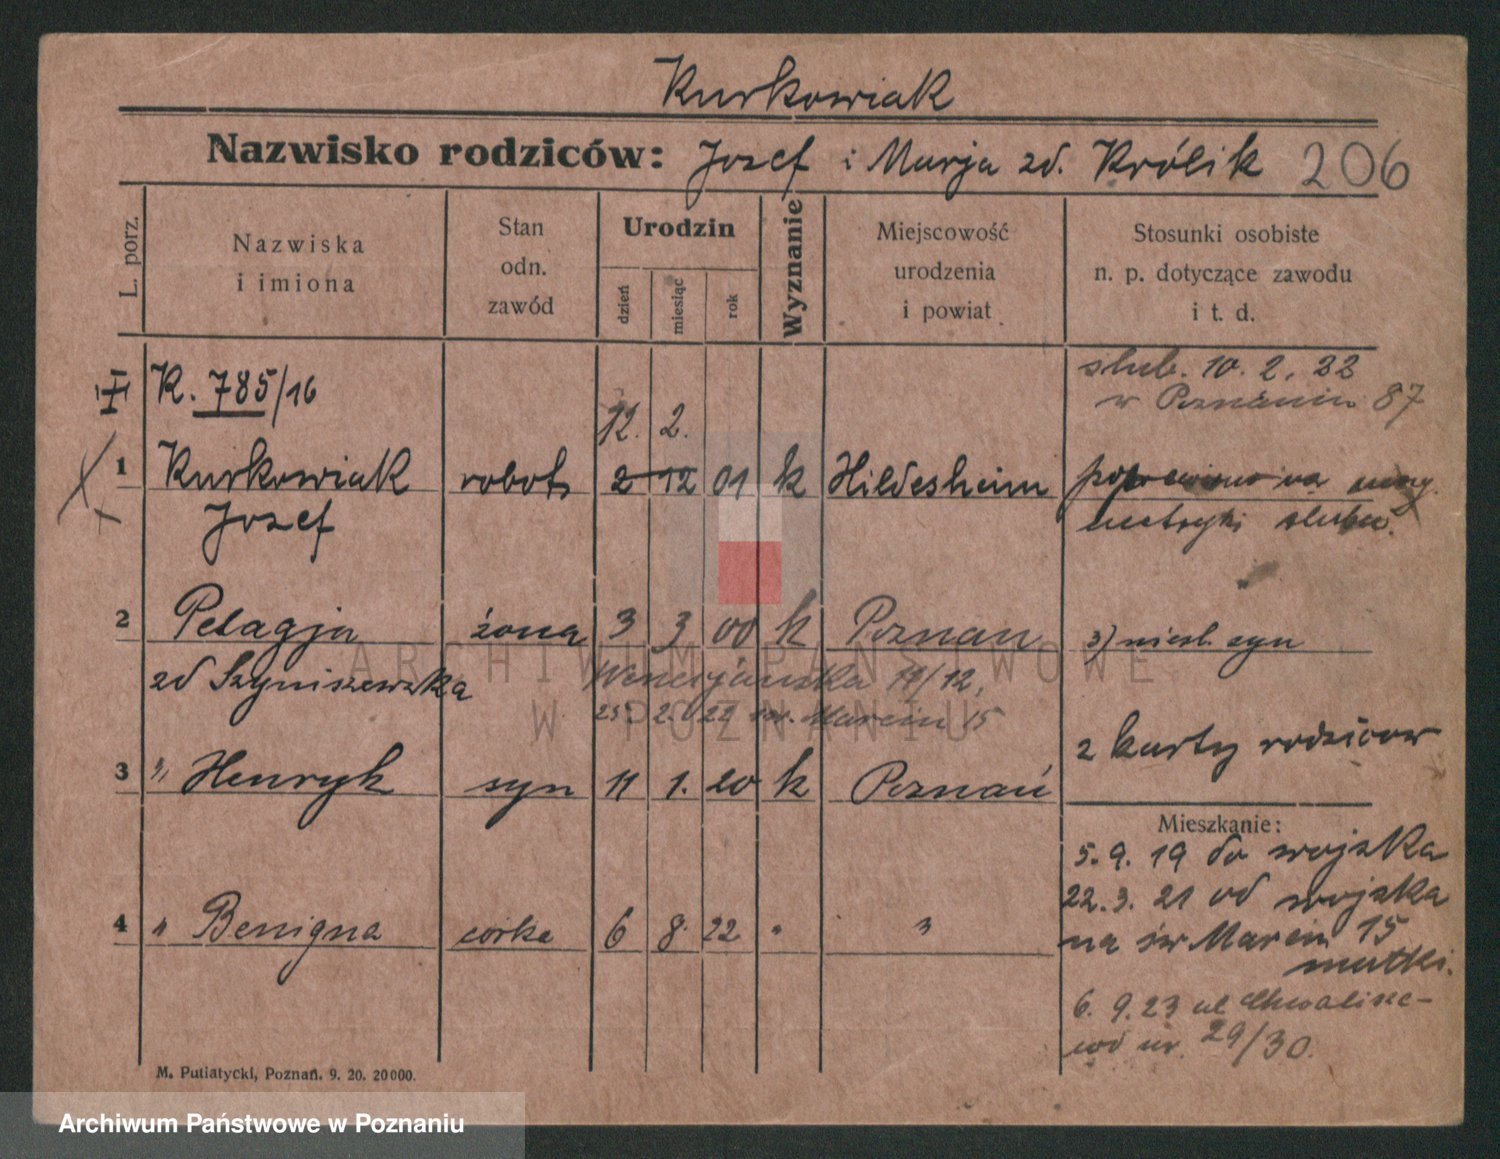 Kurkowiak
Nazwisko rodziców: Jozef i Marja zd. Królik 206
L. porz.
Nazwiska
i imiona
Stan
odn.
zawód
Urodzin
dzień
miesiąc
rok
Wyznanie
Miejscowość
urodzenia
i powiat
Stosunki osobiste
n. p. dotyczące zawodu
i t. d.
K. 785/16
ślub. 10. 2. 22
w Poznaniu 87
12. 2.
1 Kurkowiak robot. 2 12 01 k Hildesheim poprawiono na
Jozef
metryki ślubu.
2 Pelagja żona 3 3 00 k Poznań 3) nieśl. syn
zd Szyniszewska
Wenecjańska 11/12,
25. 2. 22 św. Marcin 15
2 karty rodziców
3 " Henryk syn 11 1. 20 k Poznań
Mieszkanie:
5. 9. 19 do wojska
22. 3. 21 od wojska
4 " Benigna córka 6 8. 22 " "
na św Marcin 15
matki.
6. 9. 23 ul Chwalisze-
wo nr. 29/30.
M. Putiatycki, Poznań. 9. 20. 20000.
ARCHIWUM PAŃSTWOWE
W POZNANIU
Archiwum Państwowe w Poznaniu